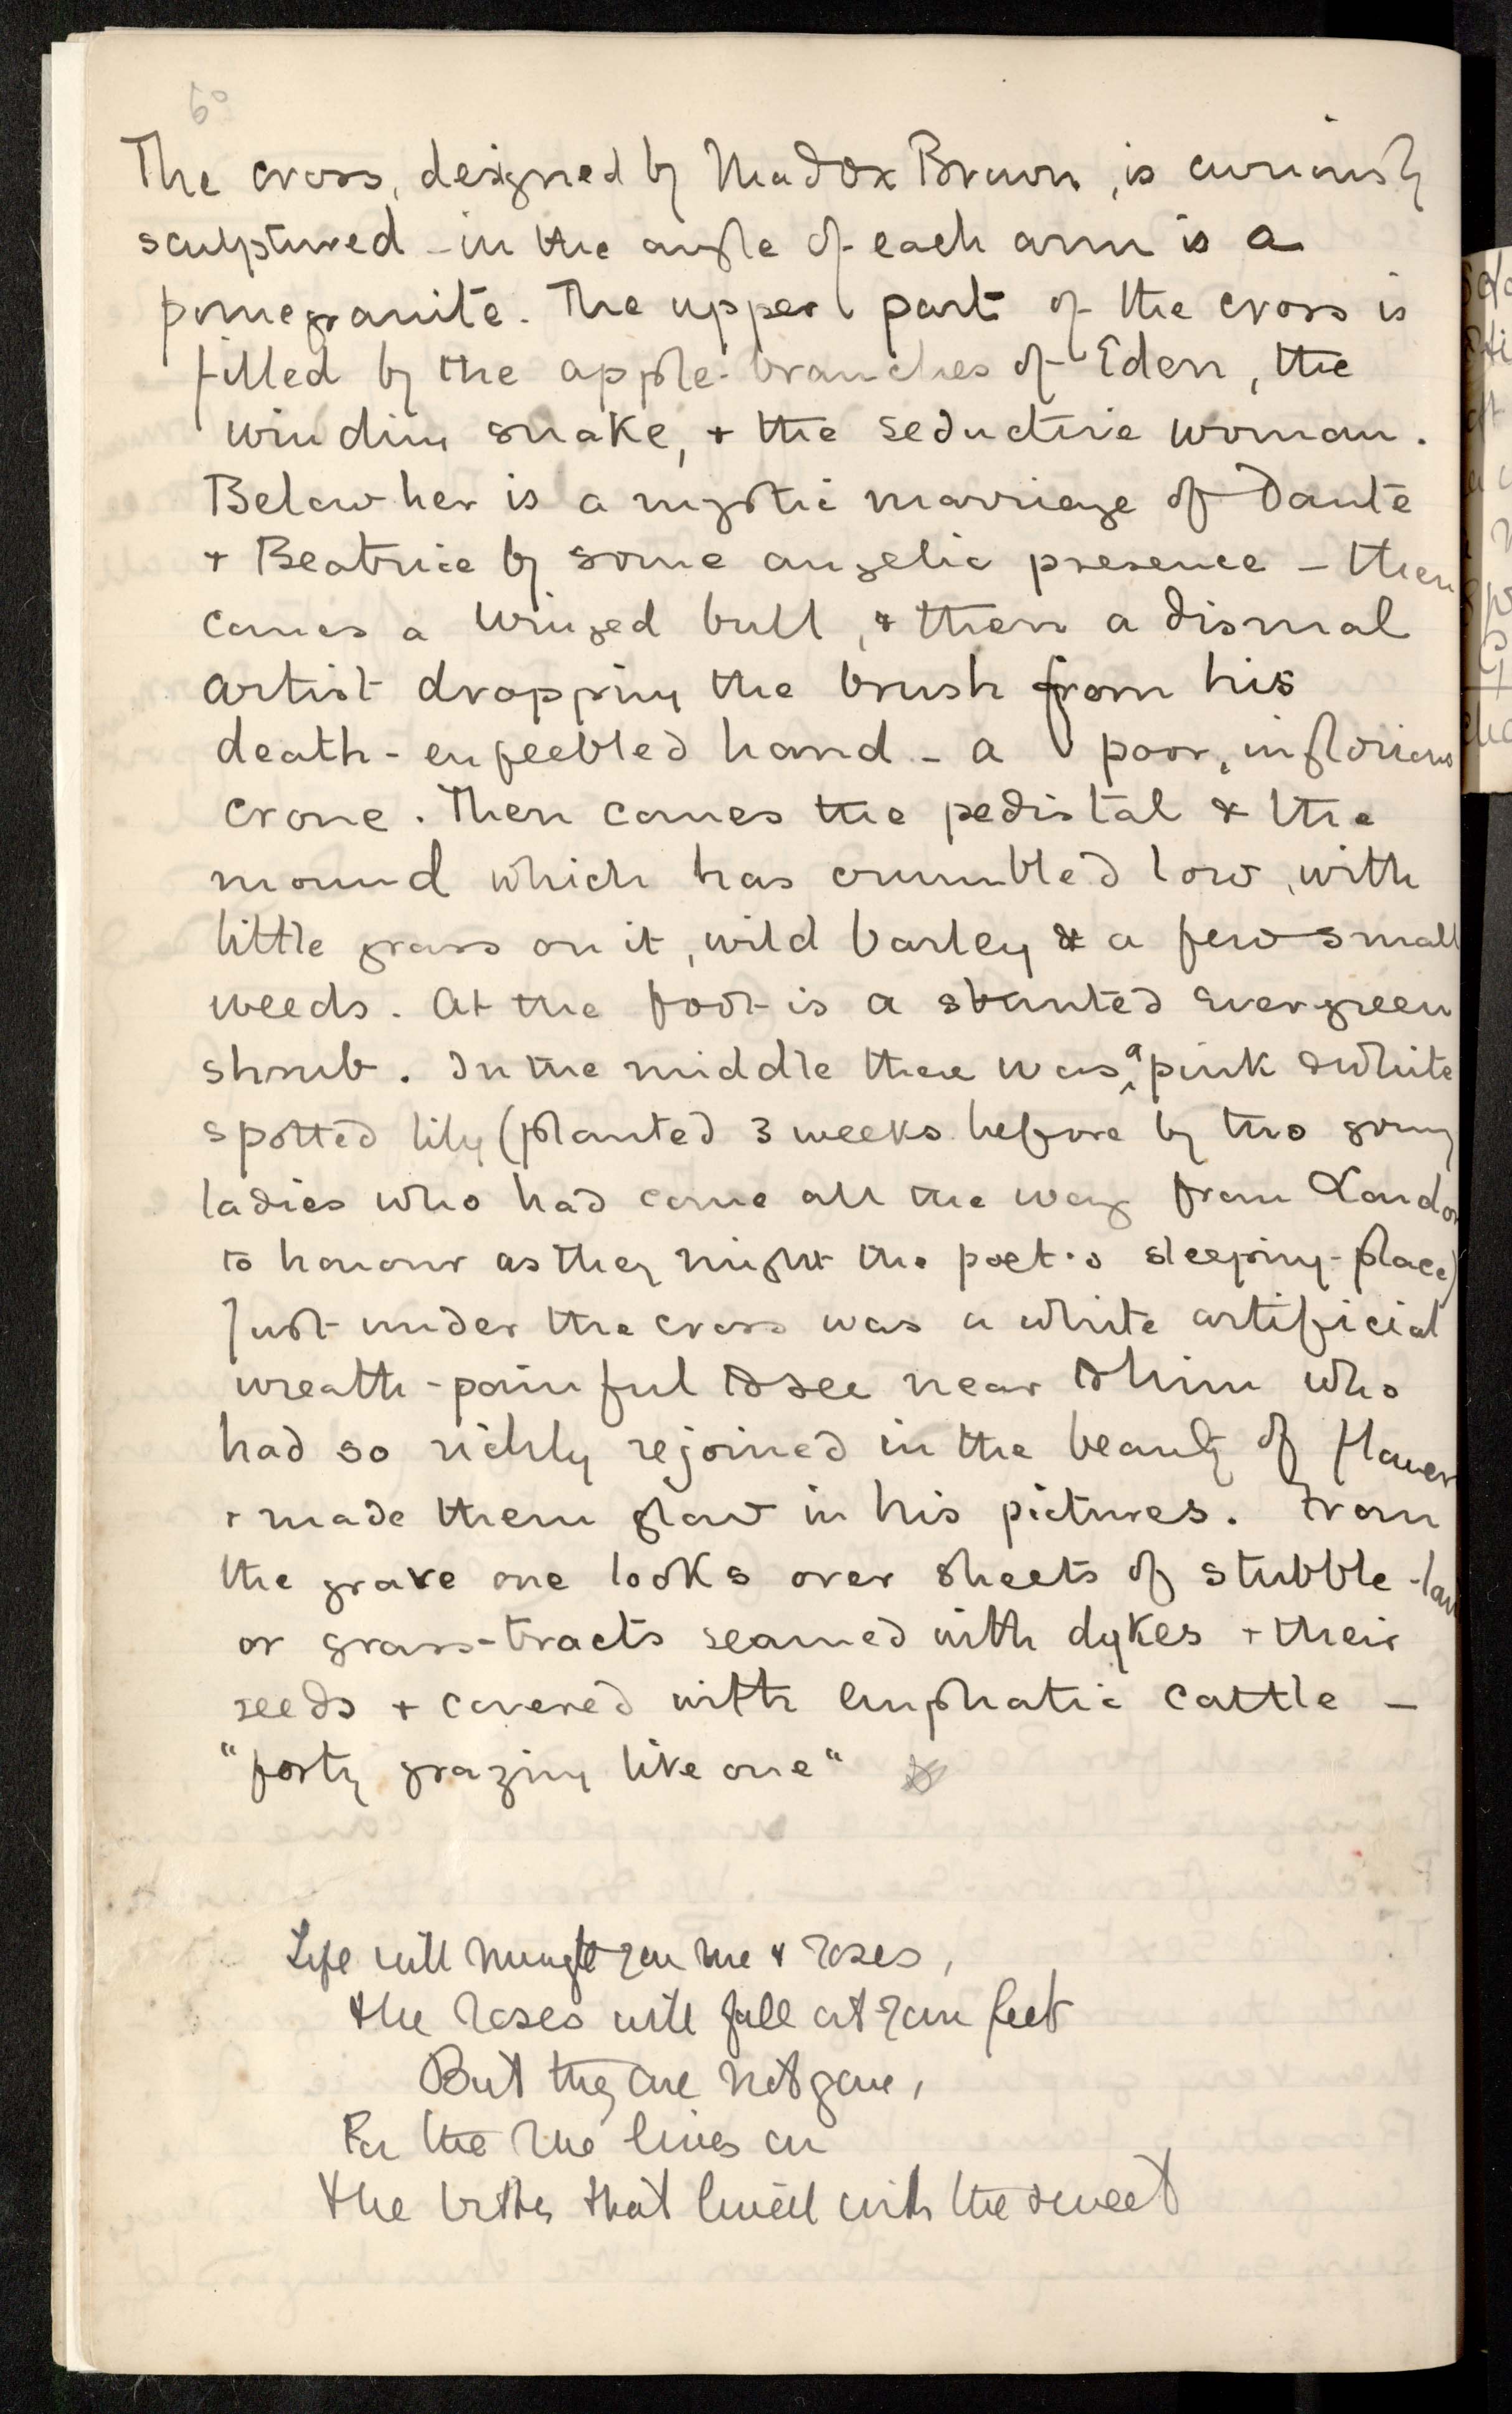 60
The cross, designed by Madox Brown, is curiously
sculptured - in the angle of each arm is a
pomegranite. The upper part of the cross is
filled by the apple-branches of Eden, the
winding snake, + the seductive woman.
Below her is a mystic marriage of Dante
+ Beatrice by some angelic presence - then
comes a winged bull, & then a dismal
artist dropping the brush from his
death-enfeebled hand - a poor, inglorious
crone. Then comes the pedistal & the
mound which has crumbled low, with
little grass on it, wild barley & a few small
weeds. At the foot is a stunted evergreen
shrub. In the middle there was a pink & white
spotted lily (planted 3 weeks before by two young
ladies who had come all the way from London
to honour as they might the poet's sleeping-place)
Just under the cross was a white artificial
wreath - painful to see near to him who
had so richly rejoined in the beauty of flowers
+ made them glow in his pictures. From
the grave one looks over sheets of stubble-lan
or grass-tracts seamed with dykes + their
reeds + covered with emphatic cattle -
"forty grazing like one"
Life will mingle you rue & roses,
& the roses will fall at your feet
But they are not gone,
For the rue lives on
& the bitter that lived with the sweet